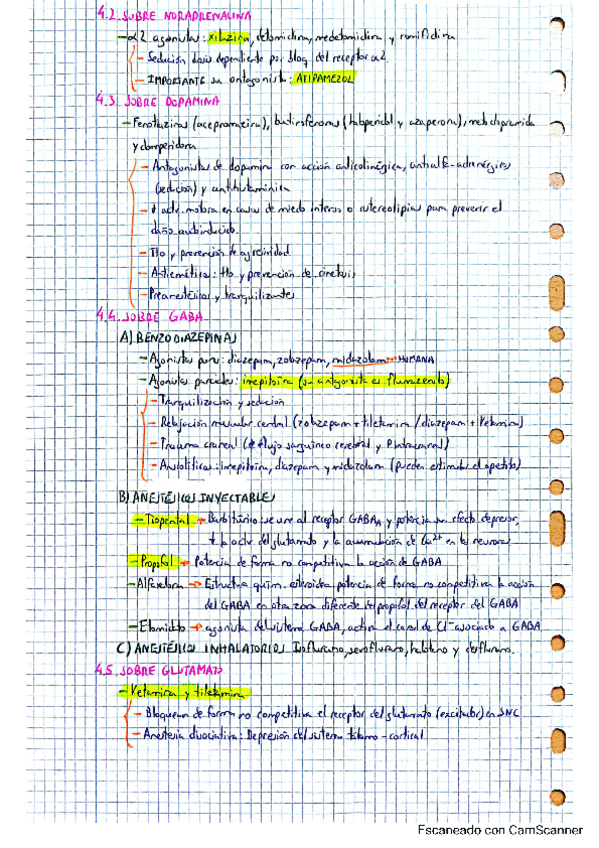 4.2. SOBRE NORADRENALINA
- α2 agonistas: xilazina, detomidina, medetomidina y romifidina
- Sedación dosis dependiente por bloq del receptor α2.
- IMPORTANTE su antagonista: ATIPAMEZOL
4.3. SOBRE DOPAMINA
- Fenotiazinas (acepromacina), butirofenonas (haloperidol y azaperona), metoclopramida
y domperidona
- Antagonistas de dopamina con acción anticolinérgica, antialfa-adrenérgicos
(sedación) y antihistamínica
- ↓ activ. motora en casos de miedo intenso o estereotipias para prevenir el
daño autoinducido.
- Tto y prevención de agresividad
- Antieméticos: tto y prevención de cinetosis
- Preanestésicos y tranquilizantes
4.4. SOBRE GABA
A) BENZODIAZEPINAS
- Agonistas puros: diazepam, zolazepam, midazolam → HUMANA
- Agonistas parciales: imepitoina (su antagonista es flumazenilo)
- Tranquilización y sedación
- Relajación muscular central (zolazepam + tiletamina / diazepam + Ketamina)
- Trauma craneal (↓ flujo sanguíneo cerebral y P intracraneal)
- Ansiolíticos: imepitoina, diazepam y midazolam (pueden estimular el apetito)
B) ANESTÉSICOS INYECTABLES
- Tiopental → Barbitúrico se une al receptor GABAA y potencia su efecto depresor,
la activ del glutamato y la acumulación de Ca2+ en la neurona
- Propofol → Potencia de forma no competitiva la acción de GABA
- Alfaxalona → Estructura quím. esteroidea potencia de forma no competitiva la acción
del GABA en otra zona diferente del propofol del receptor del GABA
- Etomidato → agonista del sistema GABA, activa el canal de Cl- asociado a GABA
C) ANESTÉSICOS INHALATORIOS Isoflurano, sevoflurano, halotano y desflurano.
4.5. SOBRE GLUTAMATO
- Ketamina y tiletamina
- Bloquean de forma no competitiva el receptor del glutamato (excitador) en SNC
- Anestesia disociativa: Depresión del sistema tálamo-cortical
Escaneado con CamScanner